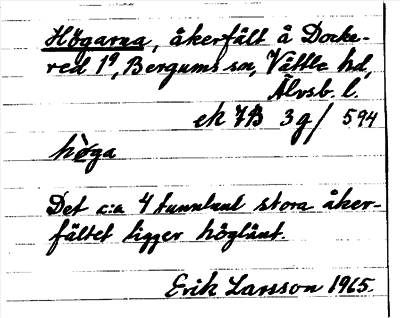 Högarna, åkerfält å Docke-
red 1⁹, Bergums sn, Vättle hd,
Älvsb. l.
ek 7B 3g/ 594
hö̀ga
Det c:a 4 tunnland stora åker-
fältet ligger höglänt.
Erik Larsson 1965.